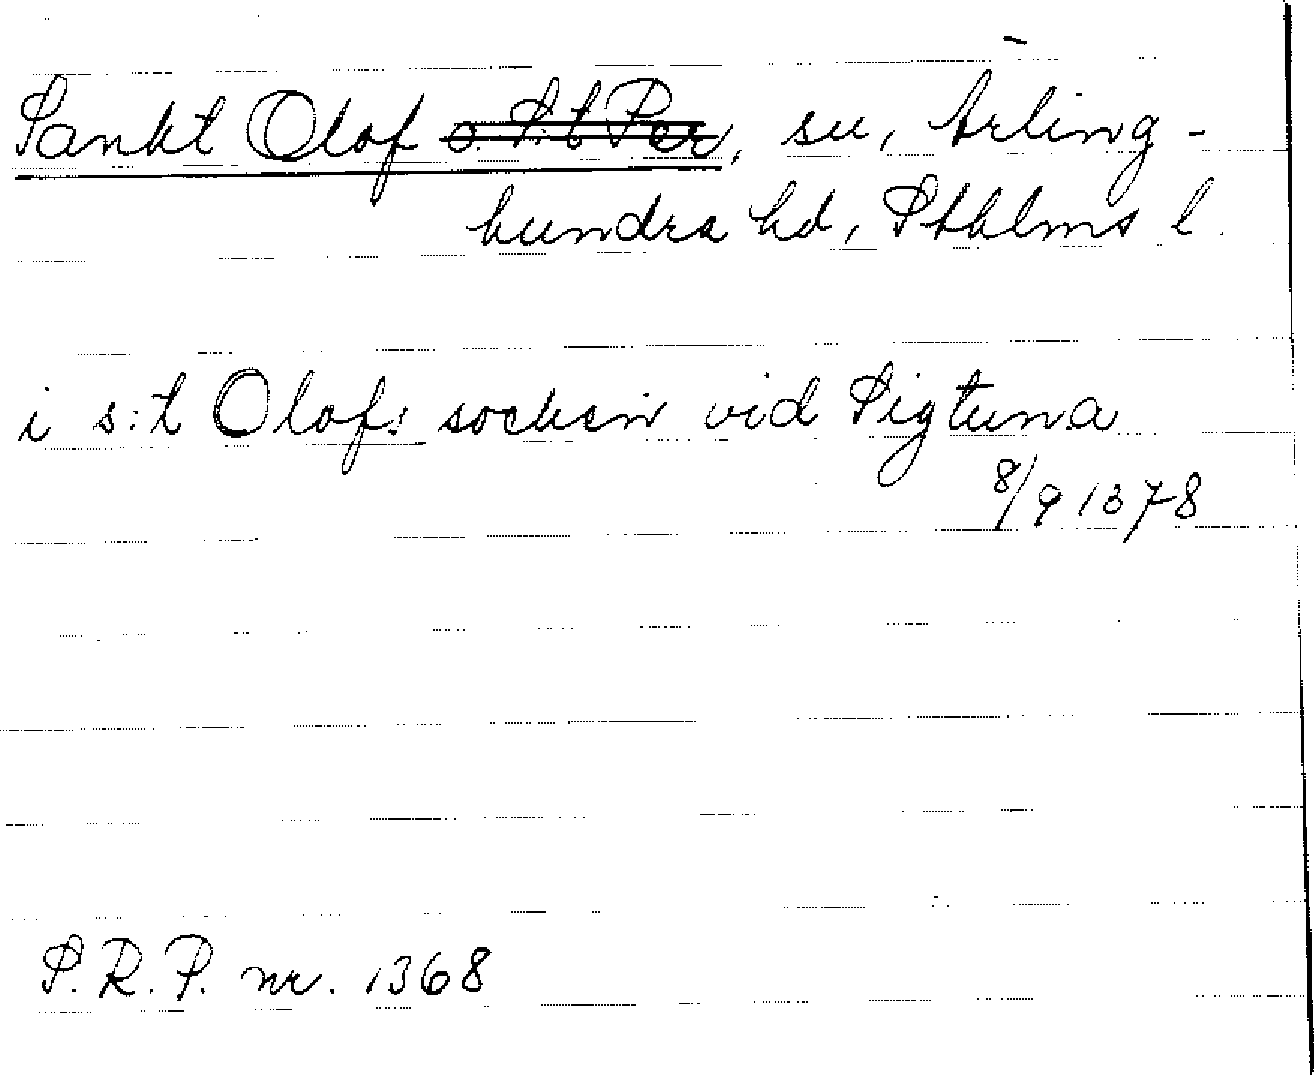 Sankt Olof o. S:t Per, sn, Ärling-
hundra hd, Sthlms l.
i s:t Olofs socken vid Sigtuna
8/9 1378
S.R.P. nr. 1368